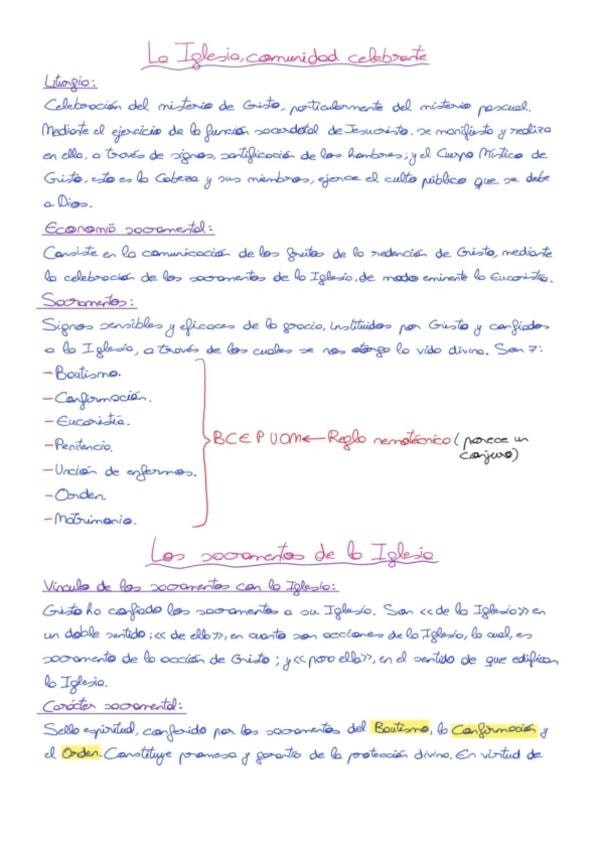 La Iglesia, comunidad celebrante
Liturgia:
Celebración del misterio de Cristo, particularmente del misterio pascual.
Mediante el ejercicio de la función sacerdotal de Jesucristo. se manifiesta y realiza
en ella, a través de signos, santificación de los hombres; y el Cuerpo Místico de
Cristo, esto es la Cabeza y sus miembros, ejerce el culto público que se debe
a Dios.
Economía sacramental:
Consiste en la comunicación de los frutos de la redención de Cristo, mediante
la celebración de los sacramentos de la Iglesia, de modo eminente la Eucaristía.
Sacramentos:
Signos sensibles y eficaces de la gracia, instituidos por Cristo y confiados
a la Iglesia, a través de los cuales se nos otorga la vida divina. Son 7:
-Bautismo.
-Confirmación.
-Eucaristía.
-Penitencia.
BCEPUOM ← Regla nemotécnica (parece un
conjuro)
-Unción de enfermos.
-Orden.
-Matrimonio.
Los sacramentos de la Iglesia
Vínculo de los sacramentos con la Iglesia:
Cristo ha confiado los sacramentos a su Iglesia. Son <<de la Iglesia>> en
un doble sentido: <<de ella>>, en cuanto son acciones de la Iglesia, la cual, es
sacramento de la acción de Cristo; y <<para ella>>, en el sentido de que edifican
la Iglesia.
Carácter sacramental:
Sello espiritual, conferido por los sacramentos del Bautismo, la Confirmación y
el Orden. Constituye promesa y garantía de la protección divina. En virtud de